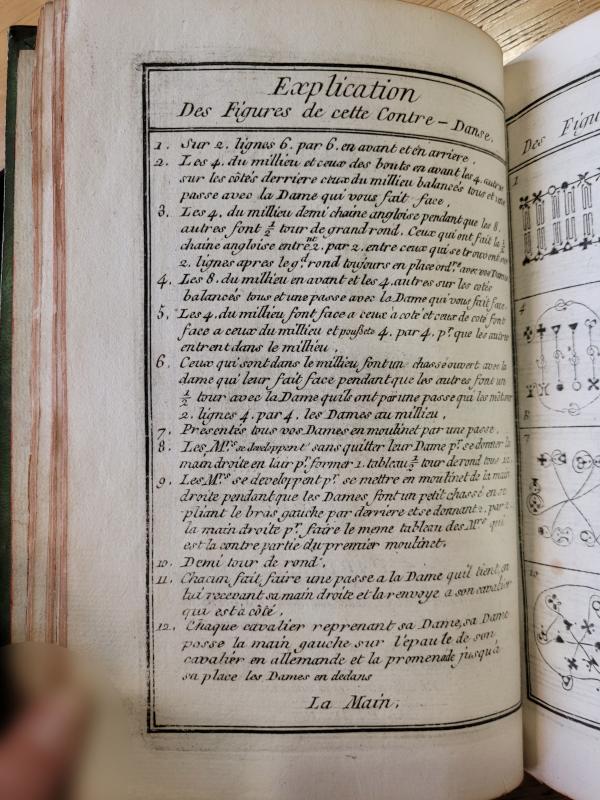 Explication
Des Figures de cette Contre-Danse.
1. Sur 2. lignes 6. par 6. en avant et en arriere.
2. Les 4. du millieu et ceux des bouts en avant les 4. autres
sur les côtés derriere ceux du millieu balancés tous et une
passe avec la Dame qui vous fait face,
3. Les 4. du millieu demi chaine angloise pendant que les 8.
autres font ½ tour de grand rond. Ceux qui ont fait la ½
chaine angloise entrent 2. par 2. entre ceux qui se trouvent
2. lignes apres le gd. rond toujours en place ordre. avec vos Dames
4. Les 8. du millieu en avant et les 4. autres sur les cotés
balancés tous et une passe avec la Dame qui vous fait face.
5. Les 4. du millieu font face a ceux a coté et ceux de coté font
face a ceux du millieu et pousseté 4. par 4. pr. que les autres
entrent dans le millieu,
6. Ceux qui sont dans le millieu font un chassé ouvert avec la
dame qui leur fait face pendant que les autres font un
½ tour avec la Dame quils ont par une passe qui les met sur
2. lignes 4. par 4. les Dames au millieu,
7. Presentés tous vos Dames en moulinet par une passe,
8. Les Mrs. se developpent sans quitter leur Dame pr. se donner la
main droite en lair pr. former 1. tableau ½ tour de rond tous 12.
9. Les Mrs. se developent pr. se mettre en moulinet de la main
droite pendant que les Dames font un petit chassé en se
pliant le bras gauche par derriere et se donnant 2. par 2.
la main droite pr. faire le meme tableau des Mrs. qui
est la contre partie du premier moulinet.
10. Demi tour de rond,
11. Chacun fait faire une passe a la Dame quil tient, en
lui recevant sa main droite et la renvoye a son cavalier
qui est à côté,
12. Chaque cavalier reprenant sa Dame, sa Dame
posse la main gauche sur l'epaule de son
cavalier en allemande et la promenade jusqu'à
sa place les Dames en dedans
La Main.
Des Figu
1
4
7
10